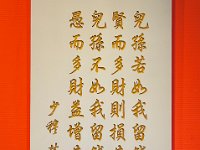 兒孫若如我留
賢而多財則損
兒孫不如我留
愚而多財益增
少穆